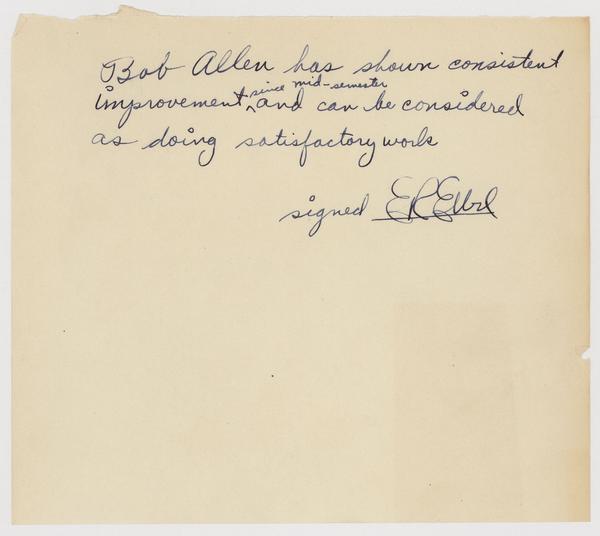 Bob Allen has shown consistent
since mid-semester
improvement ^ and can be considered
as doing satisfactory work
signed